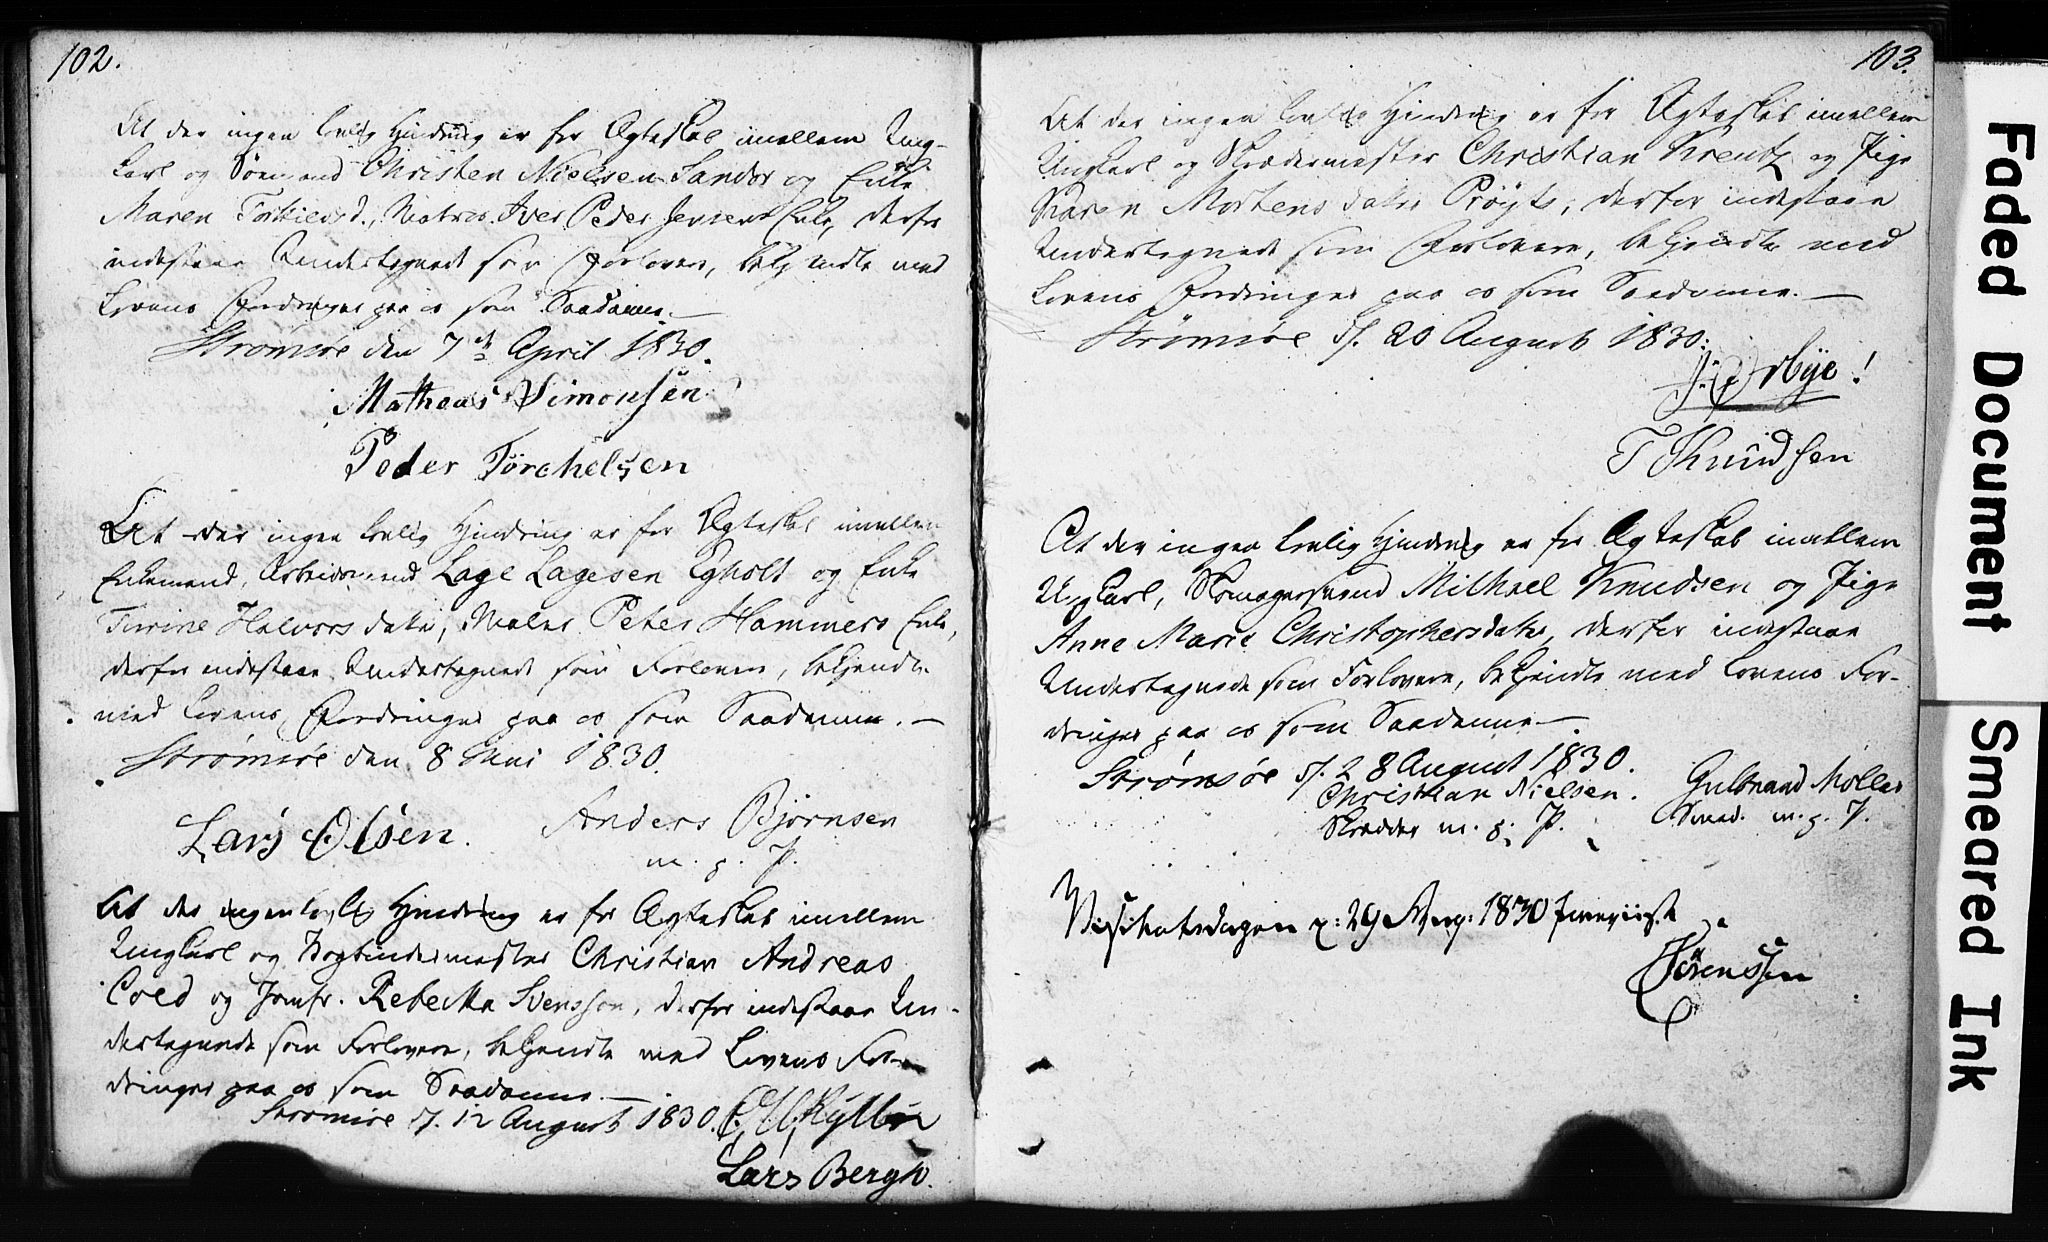 102.
At der ingen lovlig Hindring er for Ægteskab imellem Ung-
karl og Sømand Christen Nielsen Sandør og Enke
Maren Torkilsd., Matros Iver Peder Jensens Enke, derfor
indestaae Undertegnede som Forlovere, bekjendte med
Lovens Fordringer paa os som Saadanne. —
Strømsøe den 7de April 1830.
Matheas Simonsen
Peder Törchelsen
At der ingen lovlig Hindring er for Ægteskab imellem
Enkemand, Arbeidsmand Lage Lagesen Egholt og Enke
Turine Halvorsdatter, Maler Peter Hammers Enke,
derfor indestaae Undertegnede som Forlovere, bekjendte
med Lovens Fordringer paa os som Saadanne. —
Strømsøe den 8 Mai 1830.
Lars Olsen. Anders Bjørnsen
m. p. P.
At der ingen lovlig Hindring er for Ægteskab imellem
Ungkarl og Bogbindermester Christian Andreas
Coed og Jomfr. Rebekka Svensson, derfor indestaae Un-
dertegnede som Forlovere, bekjendte med Lovens For-
dringer paa os som Saadanne. —
Strømsøe d. 12 August 1830.
Lars Bergh.
103.
At der ingen lovlig Hindring er for Ægteskab imellem
Ungkarl og Skrædermester Christian Kreutz og Pige
Karen Mortensdatter Prøyts, derfor indestaae
Undertegnede som Forlovere, bekjendte med
Lovens Fordringer paa os som Saadanne. —
Strømsøe d. 20 August 1830.
Mye!
T Knudsen
At der ingen lovlig Hindring er for Ægteskab imellem
Ungkarl, Skomagersvend Michael Knudsen og Pige
Anne Marie Christophersdatter, derfor indestaae
Undertegnede som Forlovere, bekjendte med Lovens For-
dringer paa os som Saadanne. —
Strømsøe d. 28 August 1830.
Christian Nielsen. Gulbrand Moller
Skrædder m. p. P. Smed. m. p. P.
Visitatsdagen d: 29 Aug: 1830
Sörenssen
Faded Document
Smeared Ink